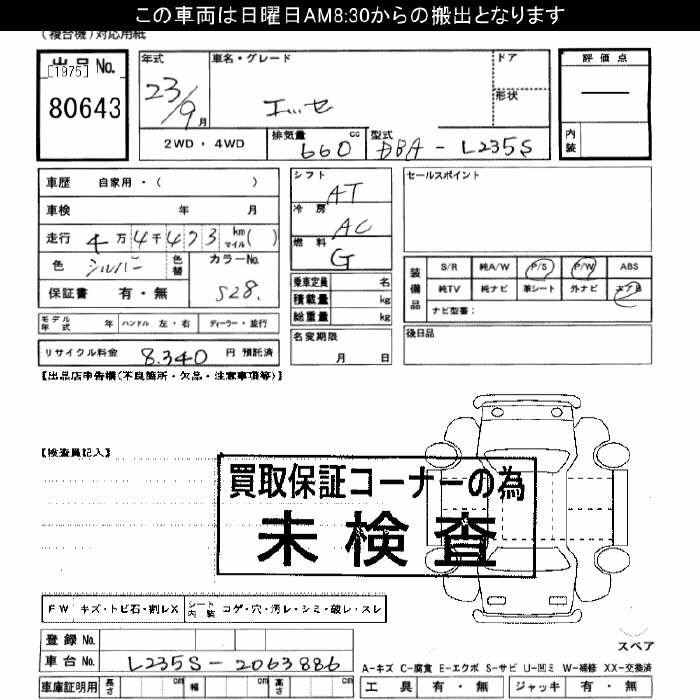 この車両は日曜日AM8:30からの搬出となります
(複合機)対応用紙
出品 No.
[1975]
80643
年式
23/9月
車名・グレード
エッセ
ドア
形状
評価点
内装
2WD・4WD
排気量 660 cc
型式 DBA-L235S
車歴 自家用・( )
車検 年 月
走行 4万4千473 km マイル( )
色 シルバー 色替 カラーNo. S28.
保証書 有・無
シフト AT
冷房 AC
燃料 G
乗車定員 名
積載量 kg
総重量 kg
セールスポイント
装備品
S/R 純A/W P/S P/W ABS
純TV 純ナビ 革シート 外ナビ エアB
ナビ型番:
モデル年式 年 ハンドル 左・右 ディーラー・並行
名変期限 月 日
後日品
リサイクル料金 8.340 円 預託済
【出品店申告欄(不良箇所・欠品・注意事項等)】
【検査員記入】
買取保証コーナーの為
未検査
FW キズ・トビ石・割レX シート内装 コゲ・穴・汚レ・シミ・破レ・スレ
登録 No.
車台 No. L235S-2063886
スペア
A-キズ C-腐食 E-エクボ S-サビ U-凹ミ W-補修 XX-交換済
車庫証明用 長さ cm 幅 cm 高さ cm
工具 有・無 ジャッキ 有・無